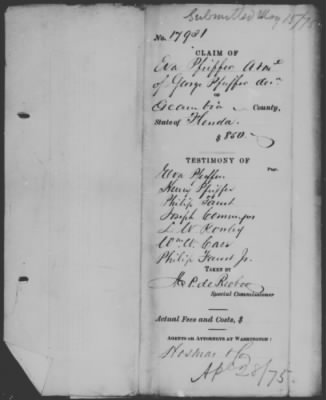 Submitted May 15/75
No. 17981
CLAIM OF
Eva Pfeiffer Adm x
of George Pfeiffer dec'd
Escambia County,
State of Florida.
$ 860.
TESTIMONY OF
Pap.
Eva Pfeiffer
Henry Pfeiffer
Philip Faust
Joseph
L. W.
Wm W.
Philip Faust Jr.
TAKEN BY
Special Commissioner
Actual Fees and Costs, $
AGENTS OR ATTORNEYS AT WASHINGTON:
Hosmer & Co
Apl 28/75.